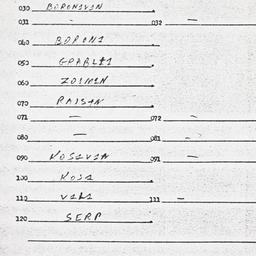 030 BORONIVIN
031 — 032 —
040 BORONI
050
060 ZOIMIN
070 PAISAN
071 — 072 —
080 — 081 —
090 NOSIVIA 091 —
100 NOSI
110 VINI 111 —
120 SERP